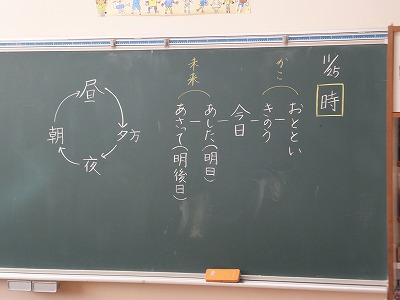 11/25
時
かこ
おととい
きのう
今日
未来
あした(明日)
あさって(明後日)
昼
夕方
夜
朝